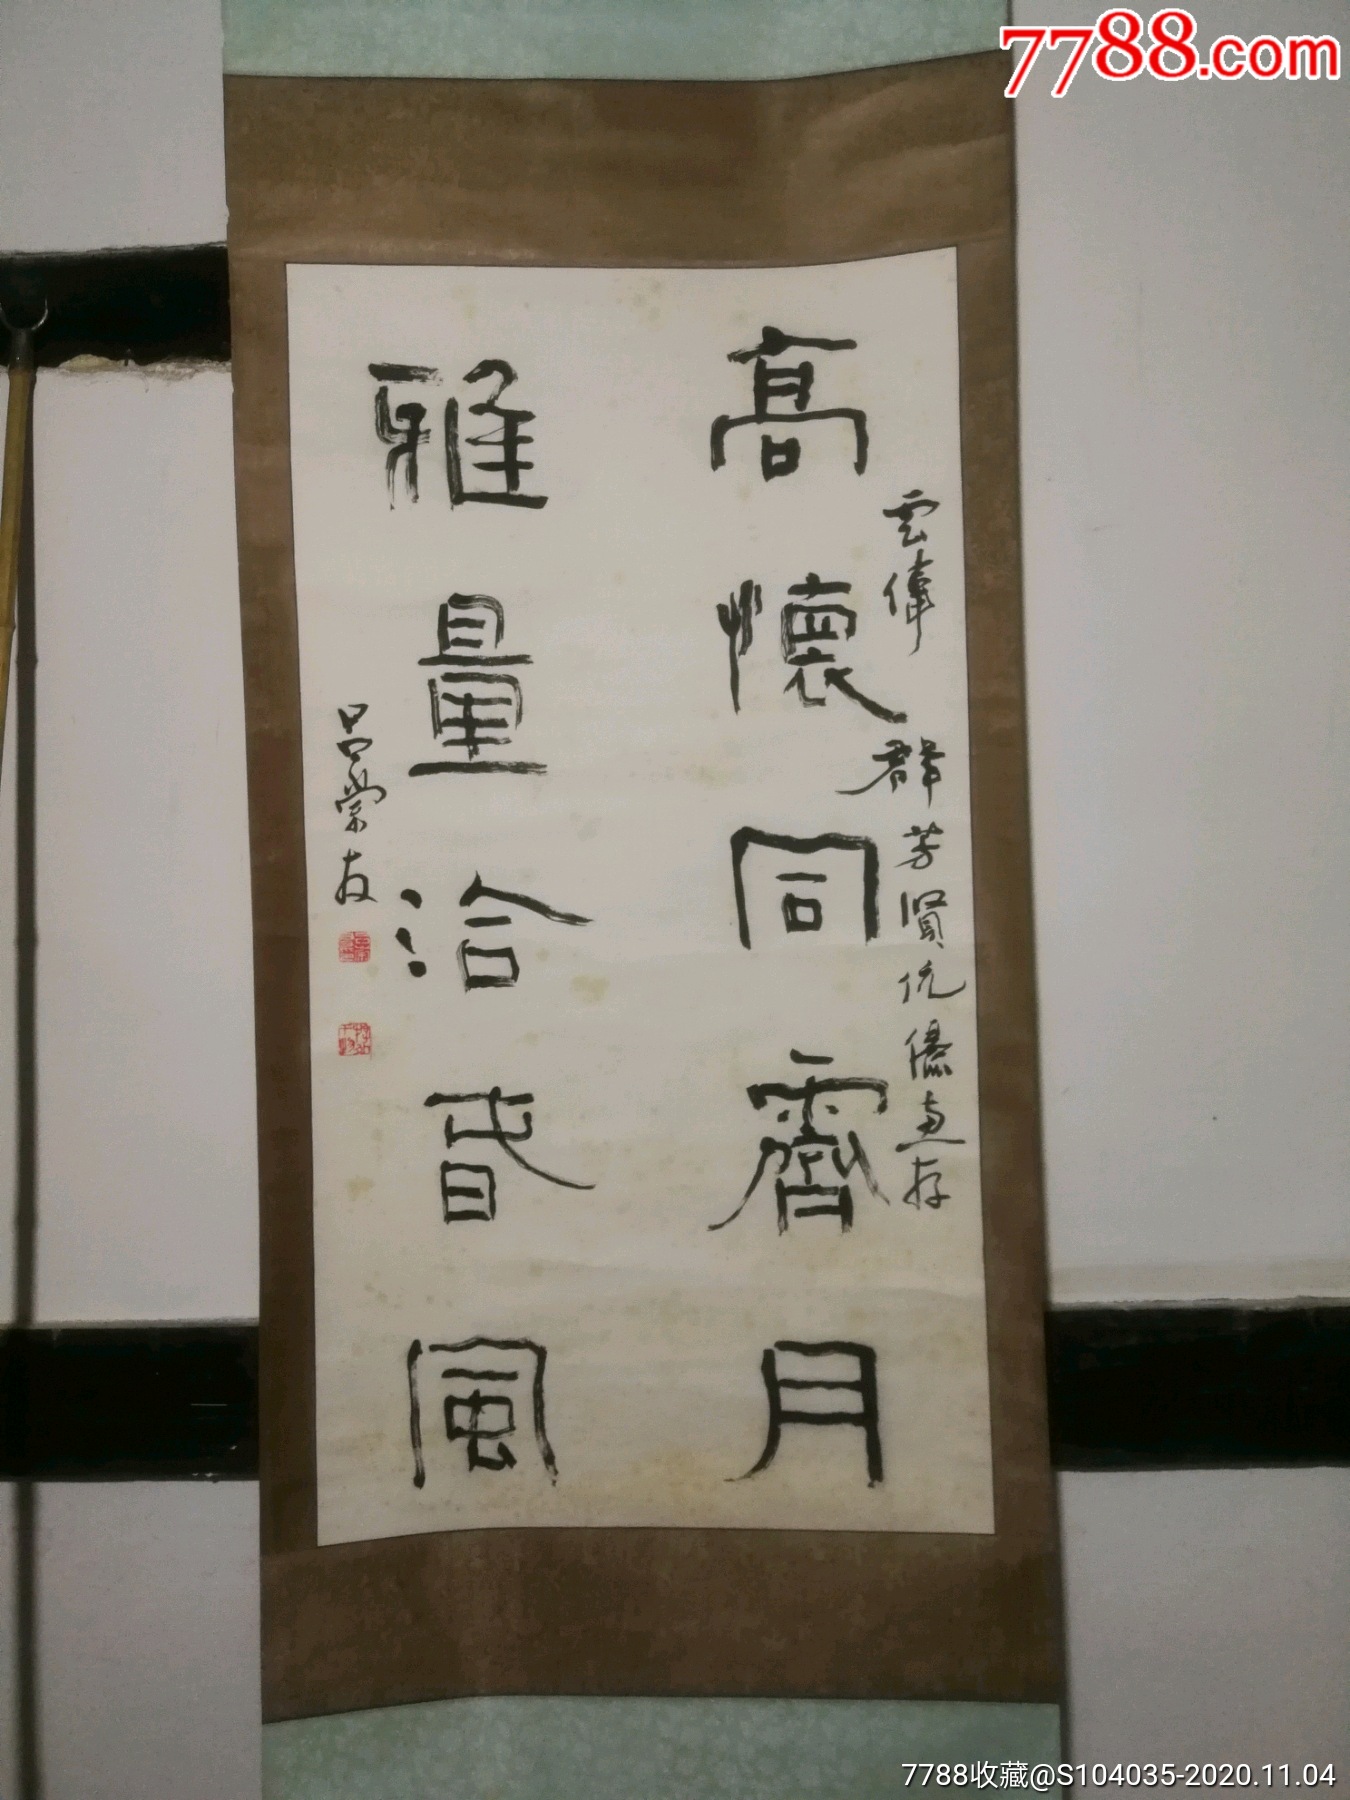 7788.com
雲偉
群芳賢伉儷惠存
高懷同霽月
雅量洽春風
呂榮友
7788收藏@S104035-2020.11.04